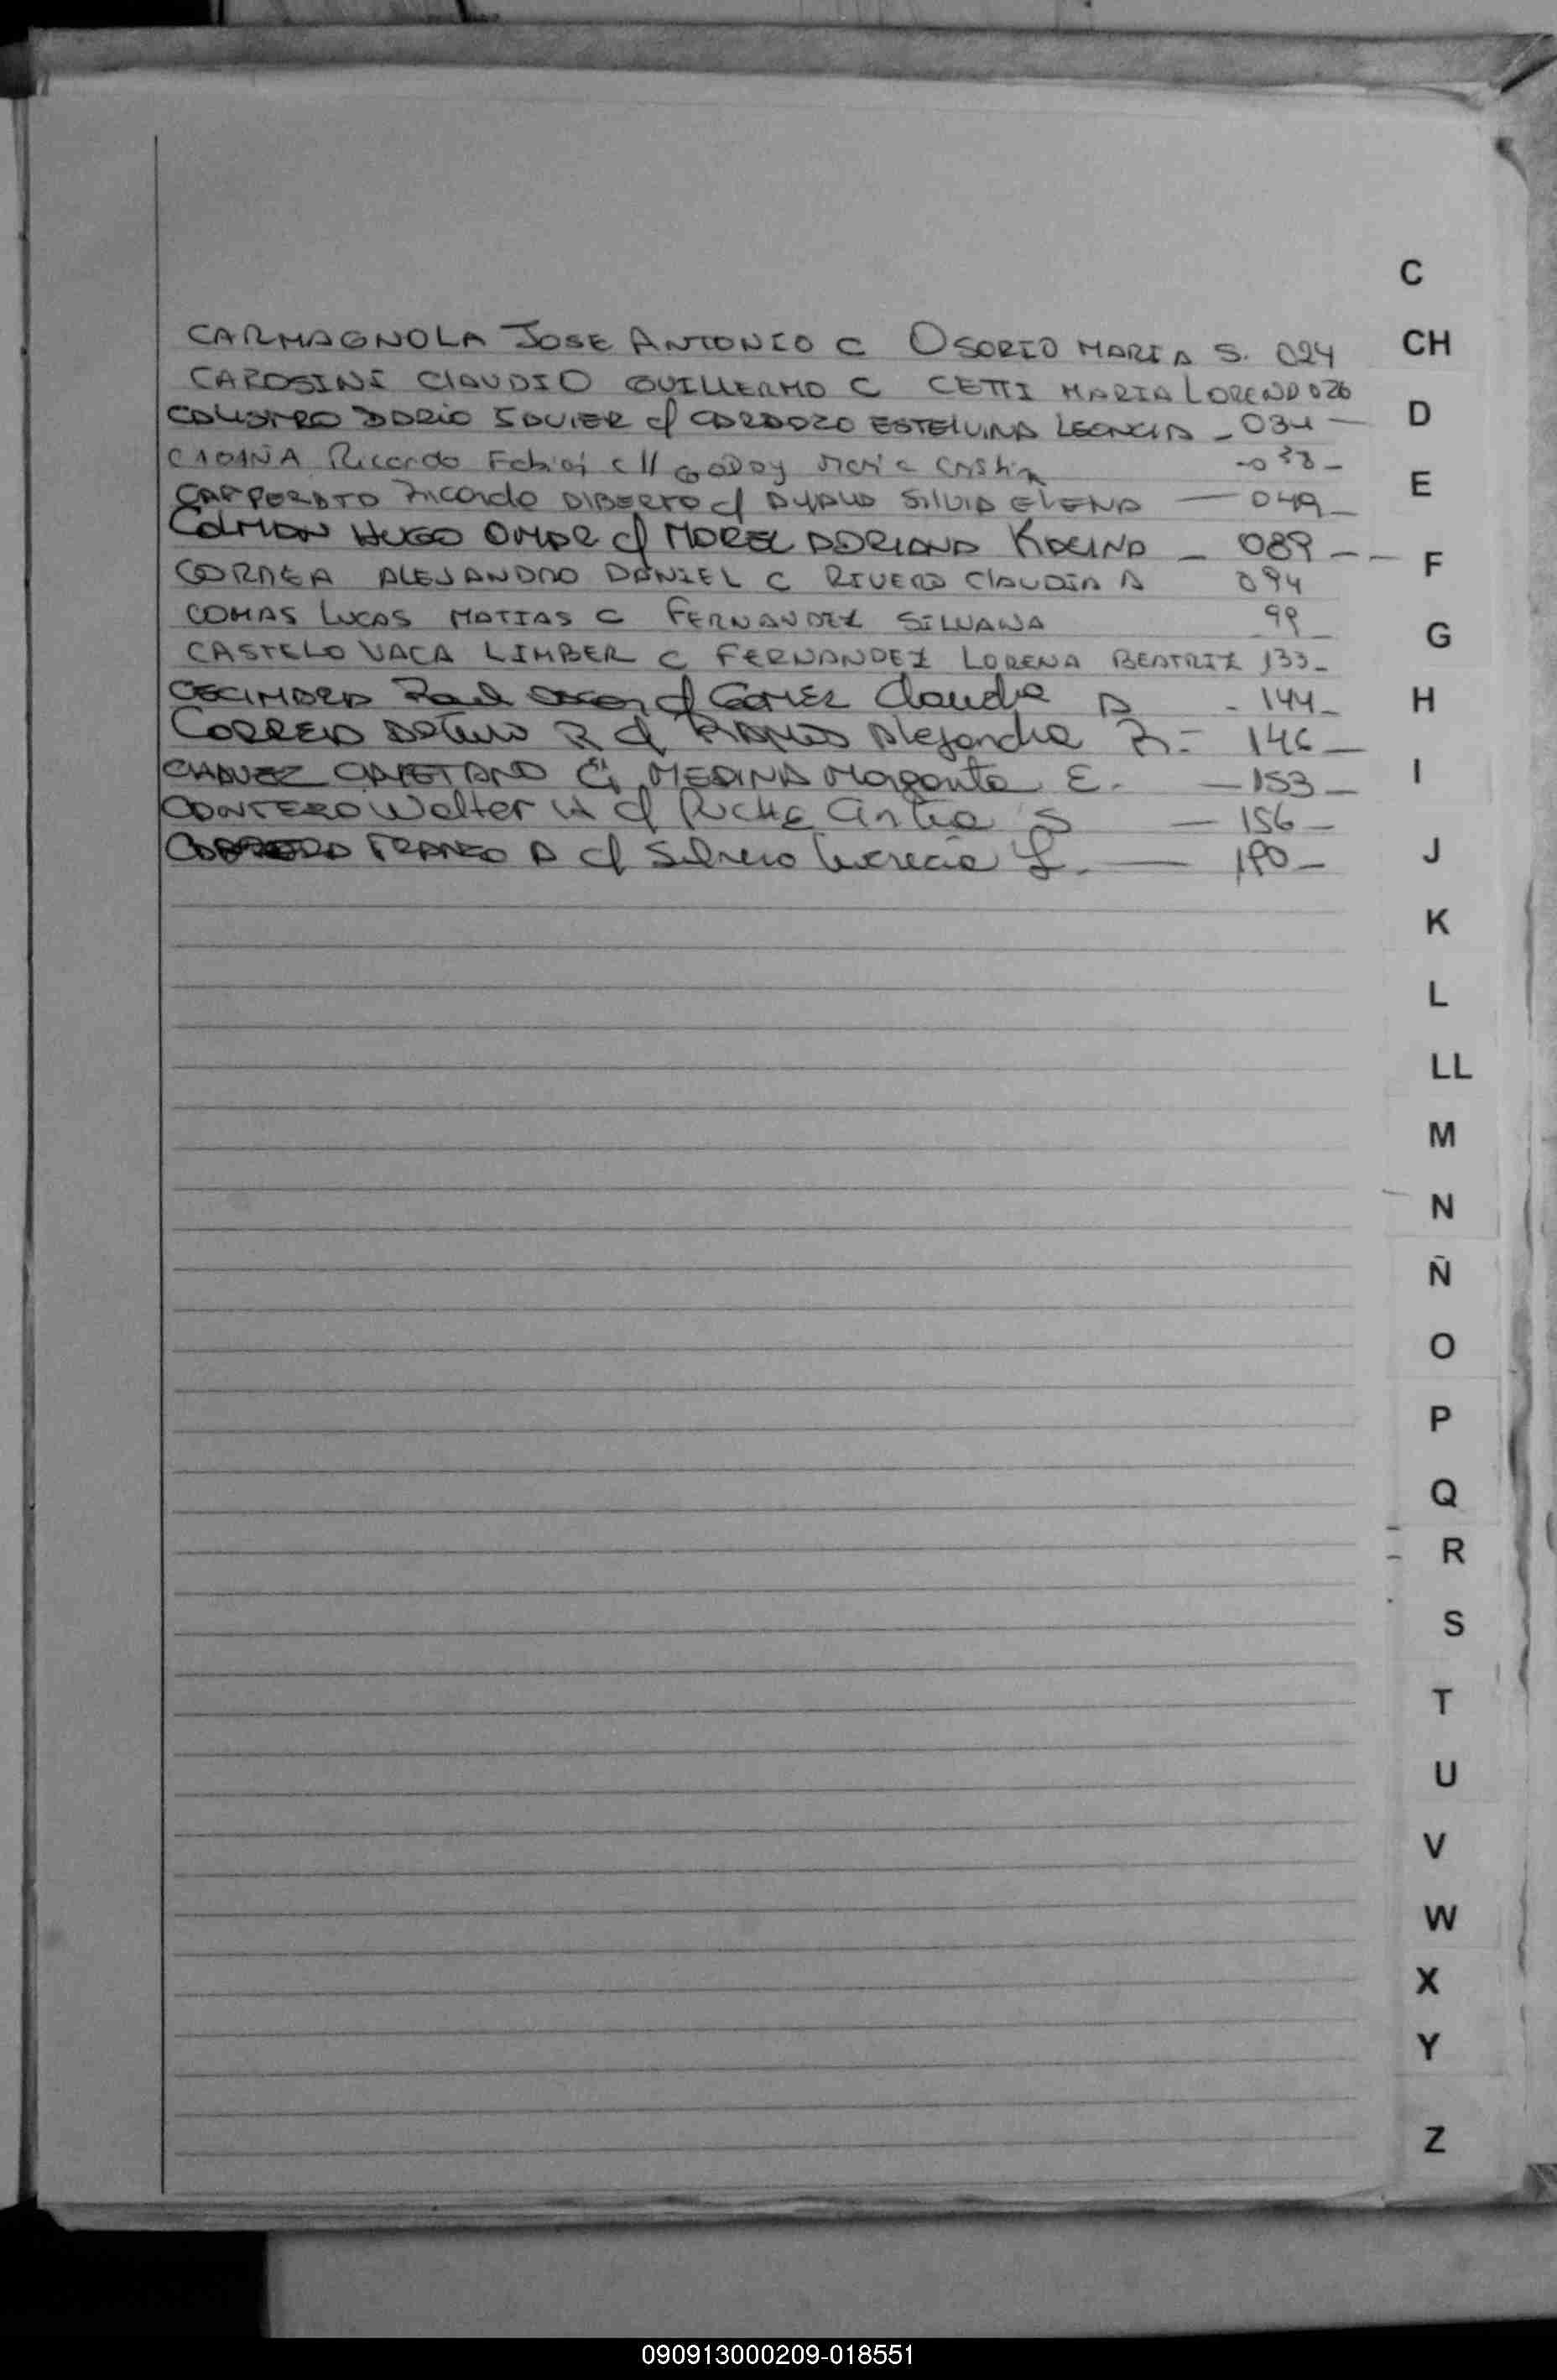 C
CARMAGNOLA JOSE ANTONIO C OSORIO MARIA S. 024
CH
CAROSINI CLAUDIO GUILLERMO C CETTI MARIA LORENA 026
DARIO JAVIER c/ CARDOZO ESTELVINA LEONCIA - 034 -
D
Ricardo Fabian c// Godoy Maria Cristina - 038 -
Ricardo ALBERTO c/ AYALA SILVIA ELENA - 049 -
E
COLMAN HUGO OMAR c/ MOREL ADRIANA KARINA - 089 - -
F
CORREA ALEJANDRO DANIEL C RIVERO CLAUDIA A 094
COMAS LUCAS MATIAS C FERNANDEZ SILVANA 99 -
G
CASTELO VACA LIMBER C FERNANDEZ LORENA BEATRIZ 133 -
Raul c/ GOMEZ Claudia A - 144 -
H
CORREA ARTURO R c/ RAMOS Alejandra R. - 146 -
CHAVEZ CAYETANO C/ MEDINA Margarita E. - 153 -
I
CONTERO Walter A c/ Cintia S - 156 -
FRANCO A c/ Lucrecia - 190 -
J
K
L
LL
M
N
Ñ
O
P
Q
R
S
T
U
V
W
X
Y
Z
090913000209-018551